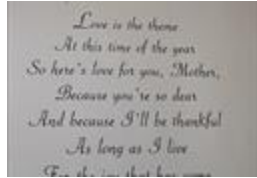 Love is the theme
At this time of the year
So here's love for you, Mother,
Because you're so dear
And because I'll be thankful
As long as I live
For the joy that has come